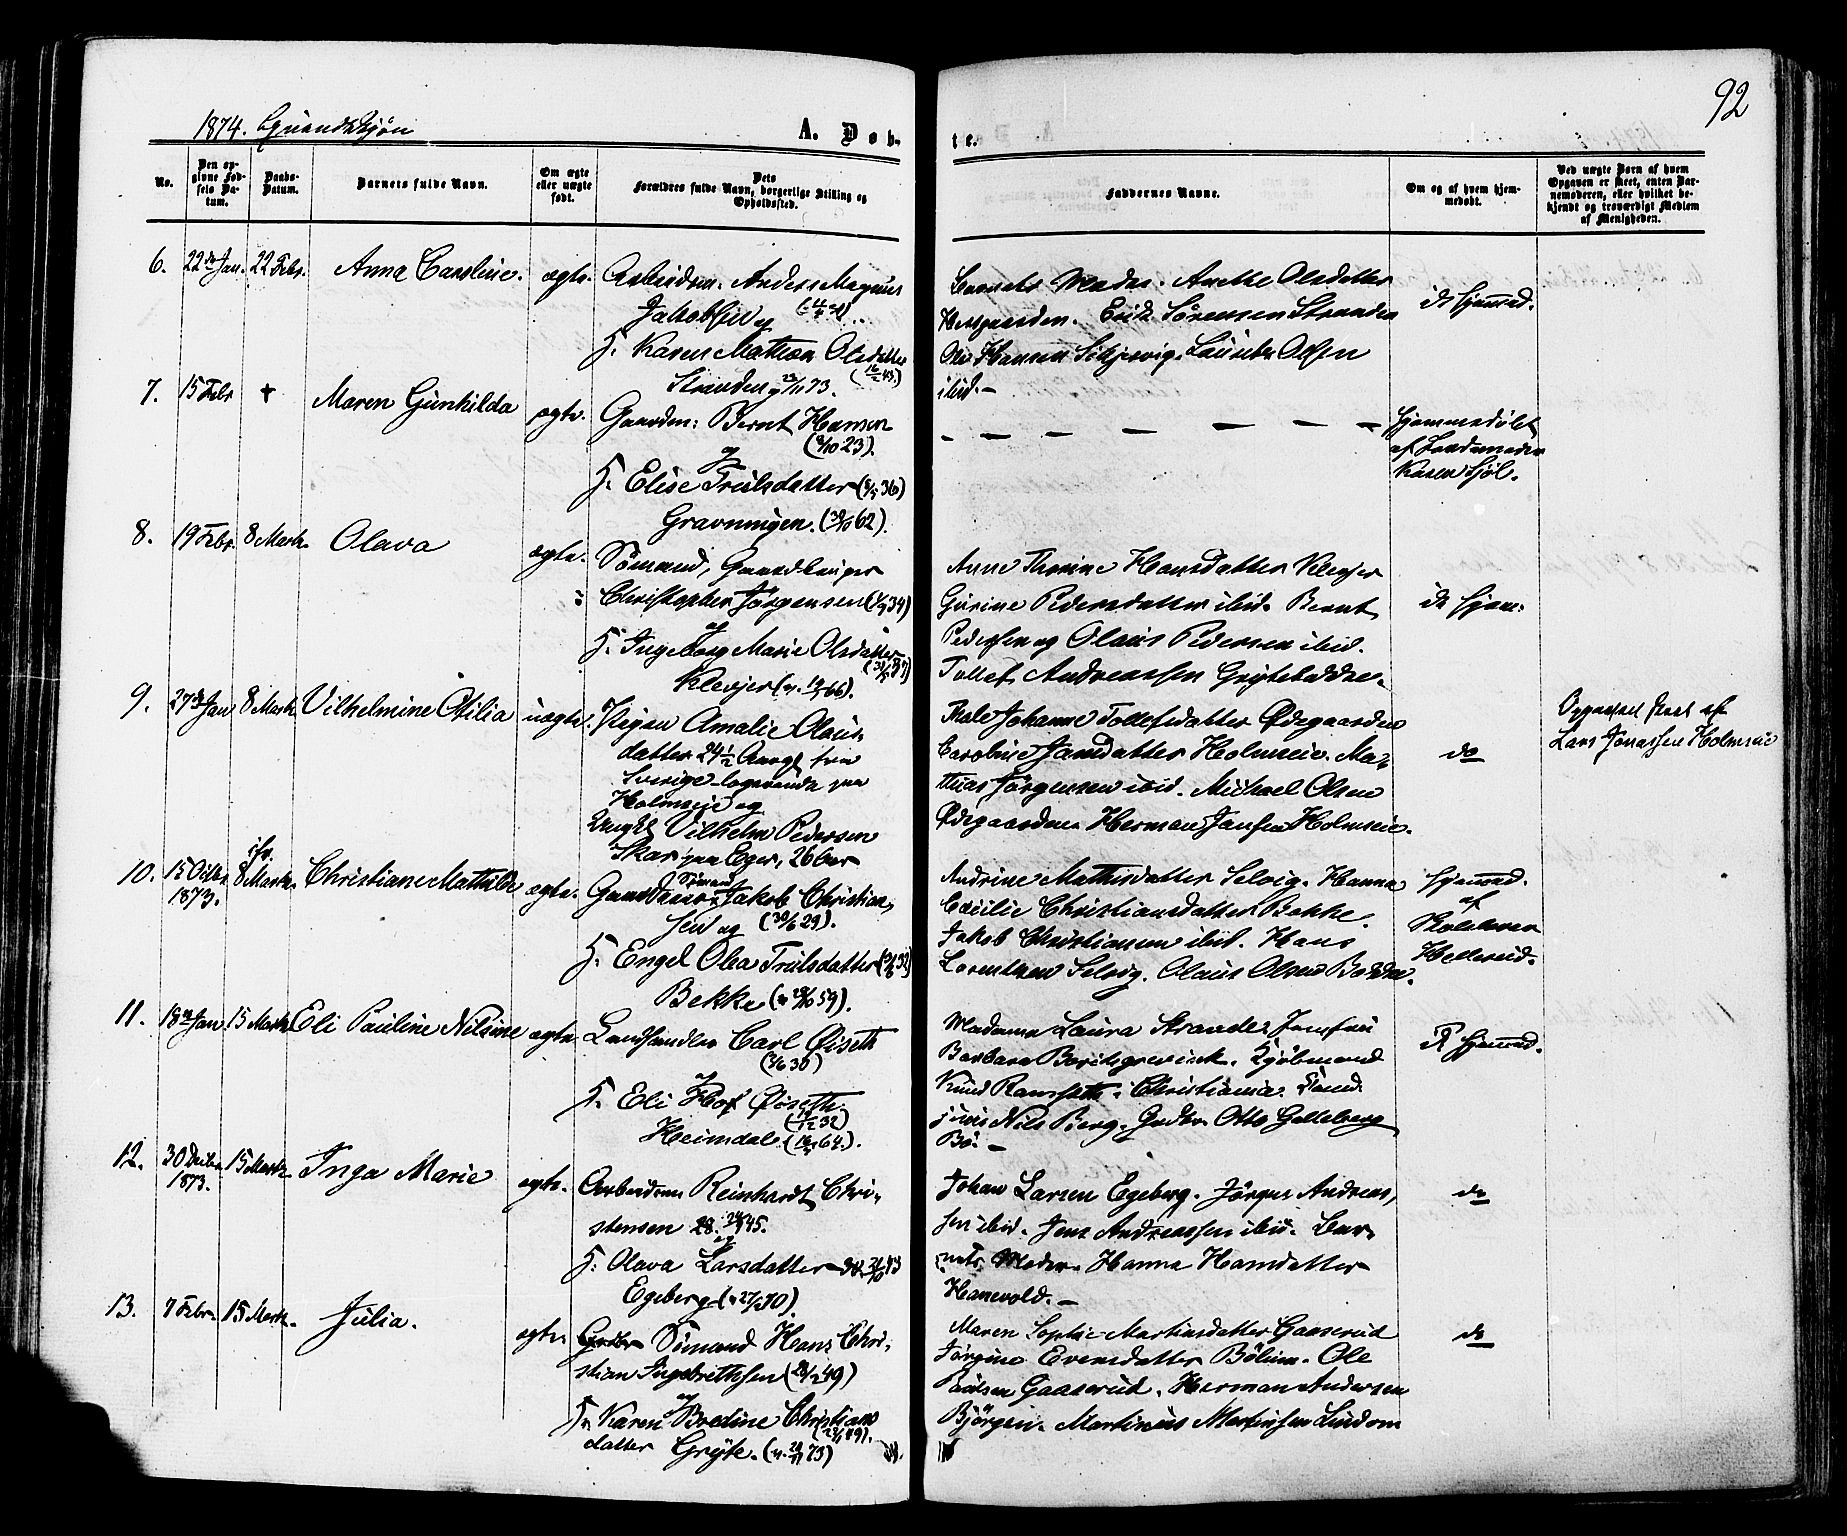 92
1874. Qvindekjøn
A. Døb-
te.
No.
Den op-
givne Fød-
sels Da-
tum.
Daabs-
Datum.
Barnets fulde Navn.
Om ægte
eller uægte
født.
Dets
Forældres fulde Navn, borgerlige Stilling og
Opholdssted.
Faddernes Navne.
Om og af hvem hjem-
medøbt.
Ved uægte Børn af hvem
Opgaven er skeet, enten Bar-
nemoderen, eller hvilket be-
kjendt og troværdigt Medlem
af Menigheden.
6. 22de Jan. 22 Febr. Anna Caroline. ægte. Arbeidsm. Anders Magnus
Jakobsen og
F. Karen Mathea Olsdatter
Stranden 73.
Barnets Moder. Anethe Olsdatter
Erik Sørensen Stranden
Ole Hansen Olsen
ibid. -
ik hjemmed.
7. 15 Febr + Maren Gunhilda ægte. Gaardm: Bernt Hansen
(8/10 23).
og
F. Elise Trulsdatter (36)
Gravningen. (62).
- - - - - - - -
Hjemmedøbt
af Jordemoder
Karen Sjøl.
8. 19 Febr. 8 Marts. Olava ægte. Sømand, Gaardbruger
Christopher Jørgensen (34)
og
F. Ingeborg Marie Olsdatter
Klevjer (v. 66).
Anne Thorine Hansdatter Klevjer
Gurine Pedersdatter ibid. Bernt
Pedersen og Olaus Pedersen ibid.
Tollef Andreassen
ik hjem:
9. 27de Jan 8 Marts. Vilhelmine Otilia uægte. Pigen Amalie Olaus-
datter 24½ Aar fra
Sverige logerende paa
Holmseje og
Ungkl Vilhelm Pedersen
Skar paa Eger, 26 Aar
Thale Johanne Tollefsdatter Ødegaarden
Caroline Jansdatter Holmseie. Ma-
thias Jørgensen ibid. Michael Olsen
Ødegaarden Herman Jansen Holmseie.
do
Opgavet skeet af
Lars Jonassen Holmseie
10. 15 Octbr 1873. 8 Marts. Christiane Mathilde ægte. Gaardbruger Sømand Jakob Christian-
sen og (30/6 29).
F. Engel Olea Trulsdatter
Bekke (v. 59).
Andrine Mathisdatter Selvig. Hanna
Cecilie Christiansdatter Bekke.
Jakob Christiansen ibid. Hans
Lorentzen Selvig. Olaus Olsen
hjemmed.
af
Hellerud.
11. 18de Jan 15 Marts Eli Pauline Nilsine ægte Landhandler Carl Øiseth
(30)
og
F. Eli Hof Øiseth
Heimdal. (64.).
Madame Laura Strande. Jomfru
Barbara Kjøbmand
Knud Ramseth. Christiania. Cand.
juris Nils Berg. Gadbr Otto Galleberg
Bø. -
ik hjemmed.
12. 30 Decbr 1873. 15 Marts Inga Marie ægte. Arbeidsm Reinhardt Chri-
stensen 28. 45.
og
F. Olava Larsdatter
Egeberg (70).
Johan Larsen Egeberg. Jørgen Andreas-
sen ibid. Jens Andreassen ibid. Bar-
nets Moder. Hanna Hansdatter
Hanevold. -
do
13. 7 Febr. 15 Marts. Julia. ægte. Sømand Hans Chri-
stian Ingebrethsen (49)
og
F. Karen Bredine Christians
datter Grøte. (v. 73)
Maren Sophie Martinsdatter Gaaserud
Jørgine Evensdatter Bølum. Ole
Paulsen Gaaserud. Herman Andersen
Bjørgen. Martinius Martinsen
do